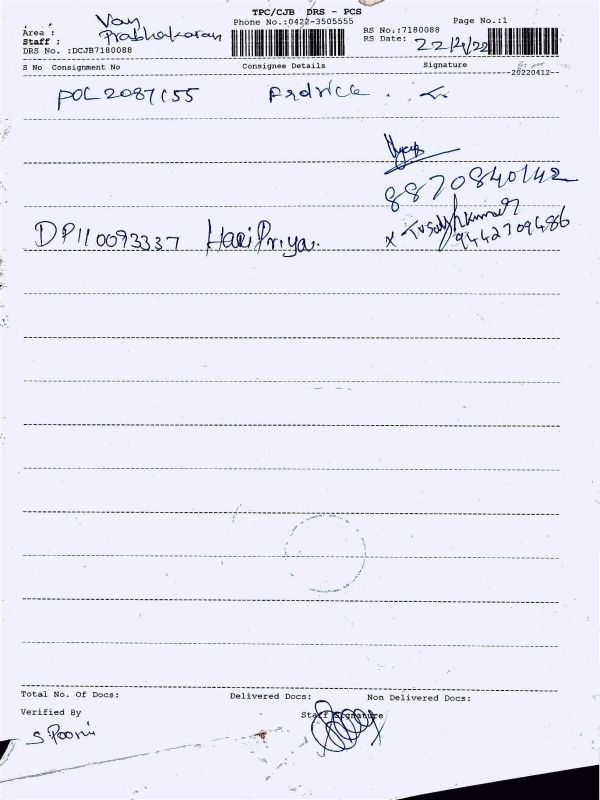 TPC/CJB DRS - PCS
Phone No.:0422-3505555
Page No.:1
Area : Vay
Staff : Prabhakaran
DRS No. :DCJB7180088
RS No.:7180088
RS Date: 22/4/22
S No Consignment No Consignee Details Signature
--20220412--
POL2087155
8870840142
DP110093337 Hari Priya.
x
9442709486
Total No. Of Docs: Delivered Docs: Non Delivered Docs:
Verified By Staff Signature
S Poorni